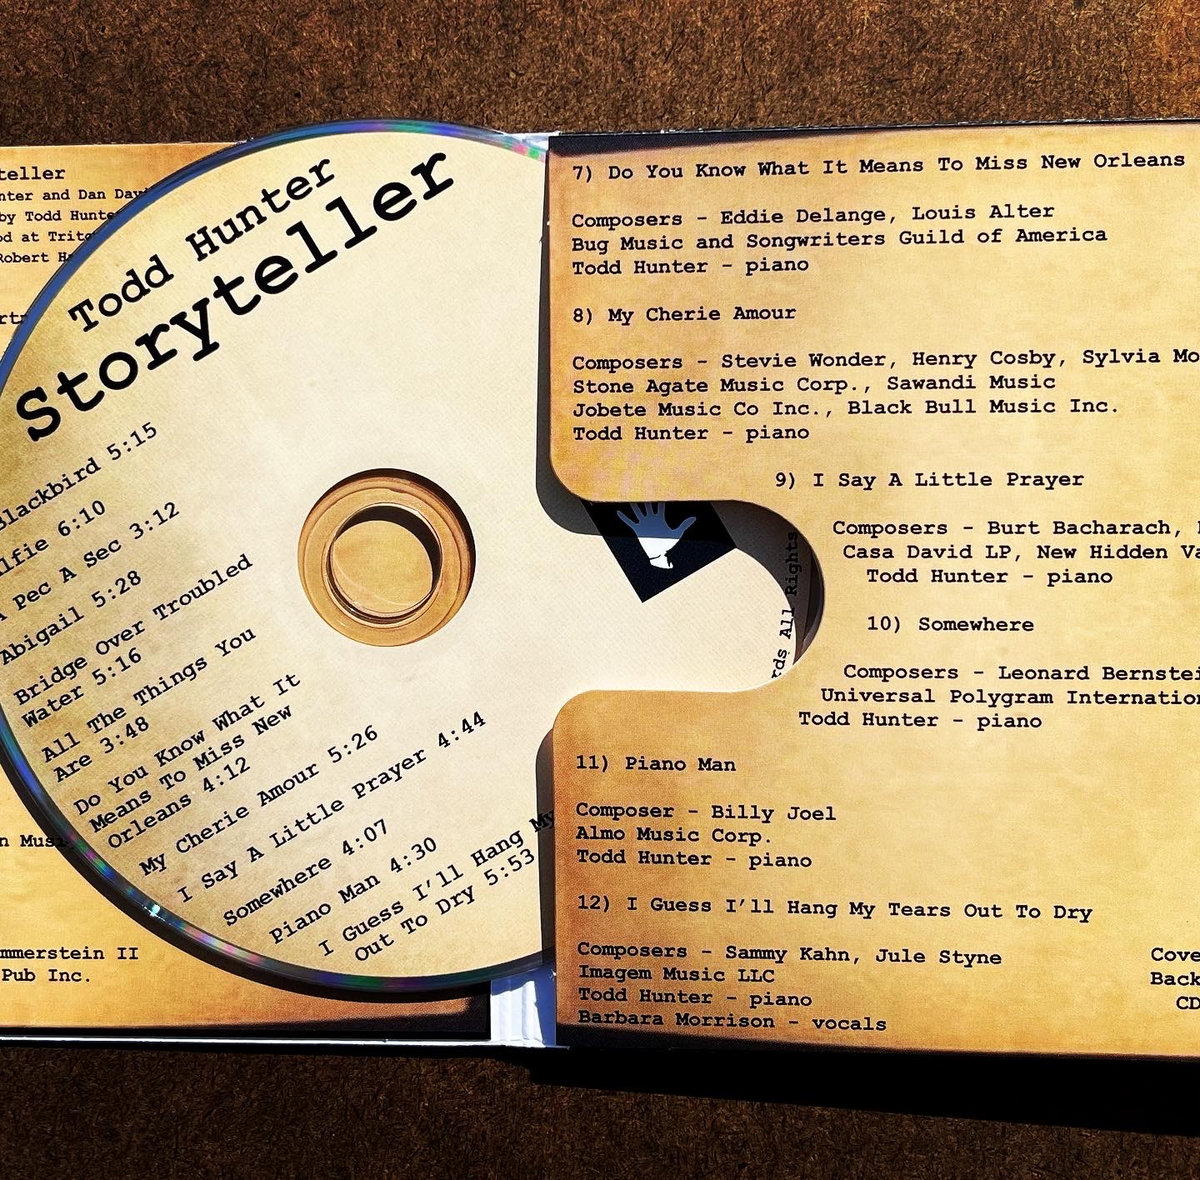 teller
nter and Dan Dav
by Todd Hunte
od at Trito
Robert H
rtr
n Musi
mmerstein II
Pub Inc.
Todd Hunter
Storyteller
Blackbird 5:15
lfie 6:10
A Pec A Sec 3:12
Abigail 5:28
Bridge Over Troubled
Water 5:16
All The Things You
Are 3:48
Do You Know What It
Means To Miss New
Orleans 4:12
My Cherie Amour 5:26
I Say A Little Prayer 4:44
Somewhere 4:07
Piano Man 4:30
I Guess I'll Hang My
Out To Dry 5:53
rds All Rights
7) Do You Know What It Means To Miss New Orleans
Composers - Eddie Delange, Louis Alter
Bug Music and Songwriters Guild of America
Todd Hunter - piano
8) My Cherie Amour
Composers - Stevie Wonder, Henry Cosby, Sylvia Mo
Stone Agate Music Corp., Sawandi Music
Jobete Music Co Inc., Black Bull Music Inc.
Todd Hunter - piano
9) I Say A Little Prayer
Composers - Burt Bacharach,
Casa David LP, New Hidden Va
Todd Hunter - piano
10) Somewhere
Composers - Leonard Bernstei
Universal Polygram Internation
Todd Hunter - piano
11) Piano Man
Composer - Billy Joel
Almo Music Corp.
Todd Hunter - piano
12) I Guess I'll Hang My Tears Out To Dry
Composers - Sammy Kahn, Jule Styne
Imagem Music LLC
Todd Hunter - piano
Barbara Morrison - vocals
Cove
Back
CD